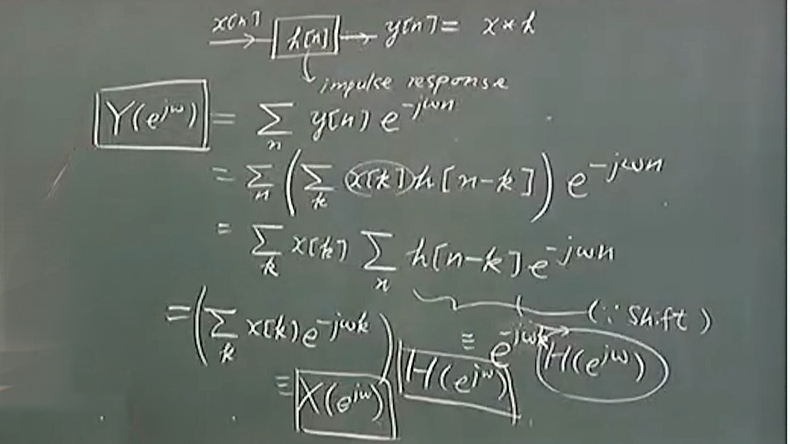 x[n] → h[n] → y[n] = x * h
impulse response
Y(e^{jω}) = Σ_n y[n] e^{-jωn}
= Σ_n ( Σ_k x[k] h[n-k] ) e^{-jωn}
= Σ_k x[k] Σ_n h[n-k] e^{-jωn}
= ( Σ_k x[k] e^{-jωk} ) H(e^{jω}) ≡ e^{-jωk} H(e^{jω}) (∵ shift)
≡ X(e^{jω})